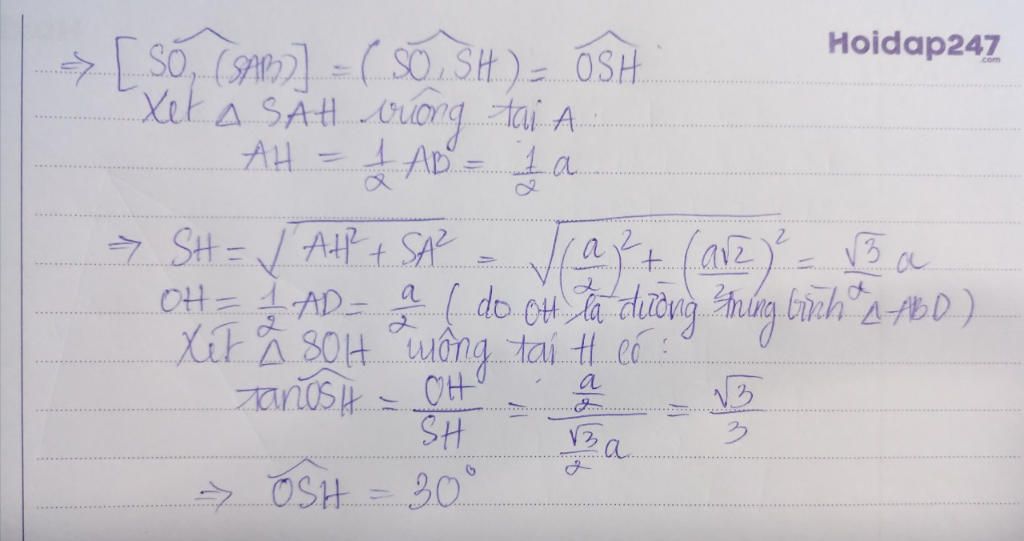 Hoidap247
.com
⇒ [SO, (SAB)] = (SO, SH) = OSH
Xét △ SAH vuông tại A
AH = 1/2 AB = 1/2 a
⇒ SH = √(AH² + SA²) = √((a/2)² + (a√2/2)²) = √3/2 a
OH = 1/2 AD = a/2 ( do OH là đường trung bình △ ABD )
Xét △ SOH vuông tại H có :
tanOSH = OH/SH = (a/2)/(√3/2 a) = √3/3
⇒ OSH = 30°